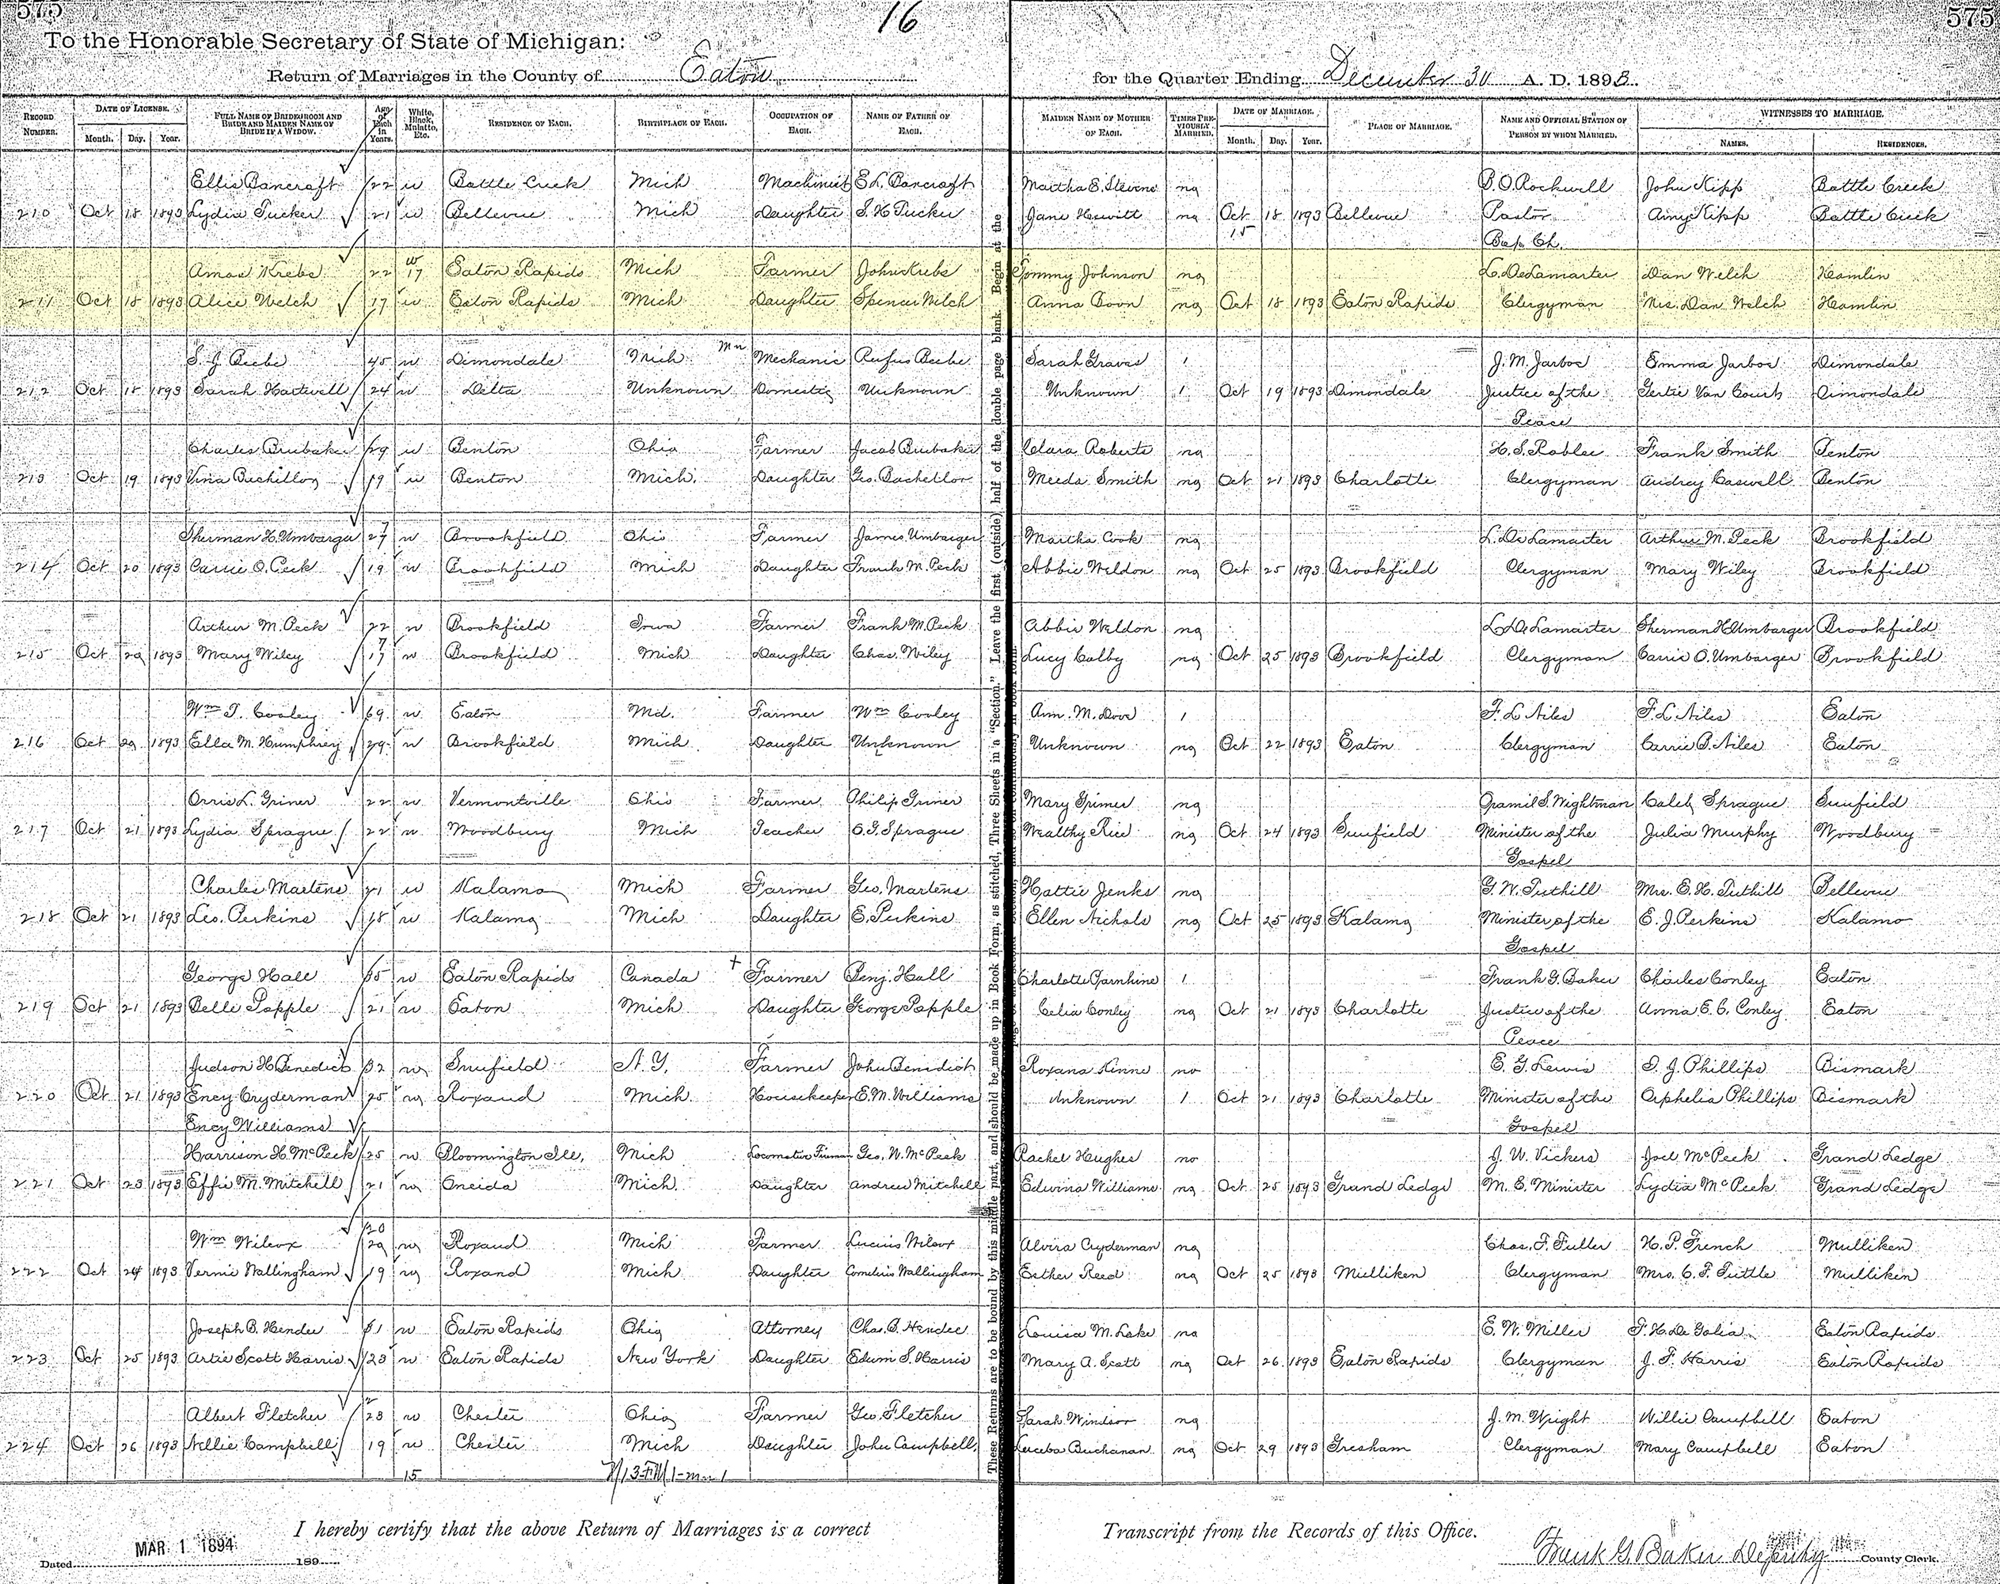 575 16 575
To the Honorable Secretary of State of Michigan:
Return of Marriages in the County of Eaton for the Quarter Ending December 30 A. D. 1893.
RECORD NUMBER. DATE OF LICENSE. FULL NAME OF BRIDEGROOM AND BRIDE AND MAIDEN NAME OF BRIDE IF A WIDOW. Age of Each in Years. White, Black, Mulatto, Etc. RESIDENCE OF EACH. BIRTHPLACE OF EACH. OCCUPATION OF EACH. NAME OF FATHER OF EACH. MAIDEN NAME OF MOTHER OF EACH. TIMES PREVIOUSLY MARRIED. DATE OF MARRIAGE. PLACE OF MARRIAGE. NAME AND OFFICIAL STATION OF PERSON BY WHOM MARRIED. WITNESSES TO MARRIAGE.
Month. Day. Year. Month. Day. Year. NAMES. RESIDENCES.
Ellis Bancroft 22 w Battle Creek Mich Machinist E. L. Bancroft Martha E. Stevens no B. O. Rockwell John Kipp Battle Creek
210 Oct 18 1893 Lydia Tucker 21 w Bellevue Mich Daughter S. H. Tucker Jane Hewitt no Oct 18 1893 Bellevue Pastor Amy Kipp Battle Creek
15 Bap Ch.
Amos Krebs 22 w Eaton Rapids Mich Farmer John Krebs Tommy Johnson no L. DeLamarter Dan Welch Hamlin
17
211 Oct 18 1893 Alice Welch 17 w Eaton Rapids Mich Daughter Spencer Welch Anna Boon no Oct 18 1893 Eaton Rapids Clergyman Mrs. Dan Welch Hamlin
S. J. Beebe 45 w Dimondale Mich Mechanic Rufus Beebe Sarah Graves 1 J. M. Jarboe Emma Jarboe Dimondale
212 Oct 18 1893 Sarah Hartwell 24 w Delta Unknown Domestic Unknown Unknown 1 Oct 19 1893 Dimondale Justice of the Gertie Van Courts Dimondale
Peace
Charles Brubaker 29 w Benton Ohio Farmer Jacob Brubaker Clara Roberts no H. S. Roblee Frank Smith Benton
213 Oct 19 1893 Vina Bachellor 19 w Benton Mich. Daughter Geo. Bachellor Meeda Smith no Oct 21 1893 Charlotte Clergyman Audray Caswell Benton
Sherman H. Umbarger 27 w Brookfield Ohio Farmer James Umbarger Martha Cook no L. DeLamarter Arthur M. Peck Brookfield
214 Oct 20 1893 Carrie O. Peck 19 w Brookfield Mich Daughter Frank M. Peck Abbie Weldon no Oct 25 1893 Brookfield Clergyman Mary Wiley Brookfield
Arthur M. Peck 22 w Brookfield Iowa Farmer Frank M. Peck Abbie Weldon no L. DeLamarter Sherman H Umbarger Brookfield
215 Oct 20 1893 Mary Wiley 17 w Brookfield Mich Daughter Chas. Wiley Lucy Colby no Oct 25 1893 Brookfield Clergyman Carrie O. Umbarger Brookfield
Wm T. Cooley 69 w Eaton Md. Farmer Wm Cooley Ann. M. Dove 1 F. L. Niles F. L. Niles Eaton
216 Oct 20 1893 Ella M. Humphrey 29 w Brookfield Mich Daughter Unknown Unknown no Oct 22 1893 Eaton Clergyman Carrie B. Niles Eaton
Orris L. Griner 22 w Vermontville Ohio Farmer Philip Griner Mary Grimes no Oramil S. Wightman Caleb Sprague Sunfield
217 Oct 21 1893 Lydia Sprague 22 w Woodbury Mich Teacher O. G. Sprague Wealthy Rice no Oct 24 1893 Sunfield Minister of the Julia Murphy Woodbury
Gospel
Charles Martens 21 w Kalamo Mich Farmer Geo. Martens Hattie Jenks no G. W. Tuthill Mrs. E. H. Tuthill Bellevue
218 Oct 21 1893 Leo. Perkins 18 w Kalamo Mich Daughter E. Perkins Ellen Nichols no Oct 25 1893 Kalamo Minister of the E. J. Perkins Kalamo
Gospel
George Hall 35 w Eaton Rapids Canada Farmer Benj. Hall Charlotte 1 Frank G. Baker Charles Conley Eaton
219 Oct 21 1893 Belle Popple 21 w Eaton Mich Daughter George Popple Celia Conley no Oct 21 1893 Charlotte Justice of the Anna E. C. Conley Eaton
Peace
Judson H Benedict 32 w Sunfield N. Y. Farmer John Benedict Roxana Kinne no E. G. Lewis S. J. Phillips Bismark
220 Oct 21 1893 Ency Cryderman 25 w Roxand Mich Housekeeper E. M. Williams Unknown 1 Oct 21 1893 Charlotte Minister of the Orphelia Phillips Bismark
Ency Williams Gospel
Harrison H. McPeek 25 w Bloomington Ill. Mich Locomotive Fireman Geo. W. McPeek Rachel Hughes no J. W. Vickers Joel McPeek Grand Ledge
221 Oct 23 1893 Effie M. Mitchell 21 w Oneida Mich Daughter Andrew Mitchell Edwina Williams no Oct 25 1893 Grand Ledge M. E. Minister Lydia McPeek Grand Ledge
Wm Wilcox 20 w Roxand Mich Farmer Lucius Wilcox Alvira Cryderman no Chas. F. Fuller H. P. French Mulliken
222 Oct 24 1893 Vernie Wallingham 19 w Roxand Mich Daughter Cornelius Wallingham Esther Reed no Oct 25 1893 Mulliken Clergyman Mrs. C. F. Tuttle Mulliken
Joseph B. Hendee 31 w Eaton Rapids Ohio Attorney Chas. B. Hendee Louisa M. Lake no E. W. Miller F. H. DeGolia Eaton Rapids
223 Oct 25 1893 Artie Scott Harris 23 w Eaton Rapids New York Daughter Edwin S. Harris Mary A. Scott no Oct 26 1893 Eaton Rapids Clergyman J. F. Harris Eaton Rapids
Albert Fletcher 23 w Chester Ohio Farmer Geo. Fletcher Sarah Windsor no J. M. Wright Willie Campbell Eaton
224 Oct 26 1893 Nellie Campbell 19 w Chester Mich Daughter John Campbell Buchanan no Oct 29 1893 Gresham Clergyman Mary Campbell Eaton
15
These Returns are to be bound by this middle part, and should be made up in Book Form, as stitched, Three Sheets in a "Section." Leave the first (outside) half of the double page blank. Begin at the
I hereby certify that the above Return of Marriages is a correct Transcript from the Records of this Office.
Dated MAR 1 1894 189 Frank G. Baker Deputy County Clerk.